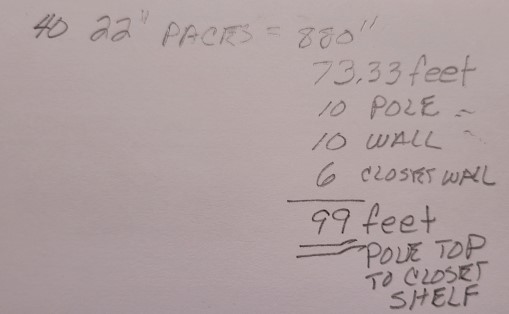 40 22" PACES = 880"
73.33 feet
10 POLE ~
10 WALL ~
6 CLOSET WALL
99 feet
POLE TOP
TO CLOSET
SHELF